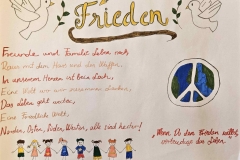 Frieden
Freunde und Familie leben noch,
Raus mit dem Hass und den Waffen,
In unserem Herzen ist ein Loch,
Eine Welt wo wir zusammen
Das Leben geht weiter,
Eine Friedliche Welt,
Norden, Osten, Süden, Westen, alle sind heiter!
„Wenn Du den Frieden willst,
das Leben.